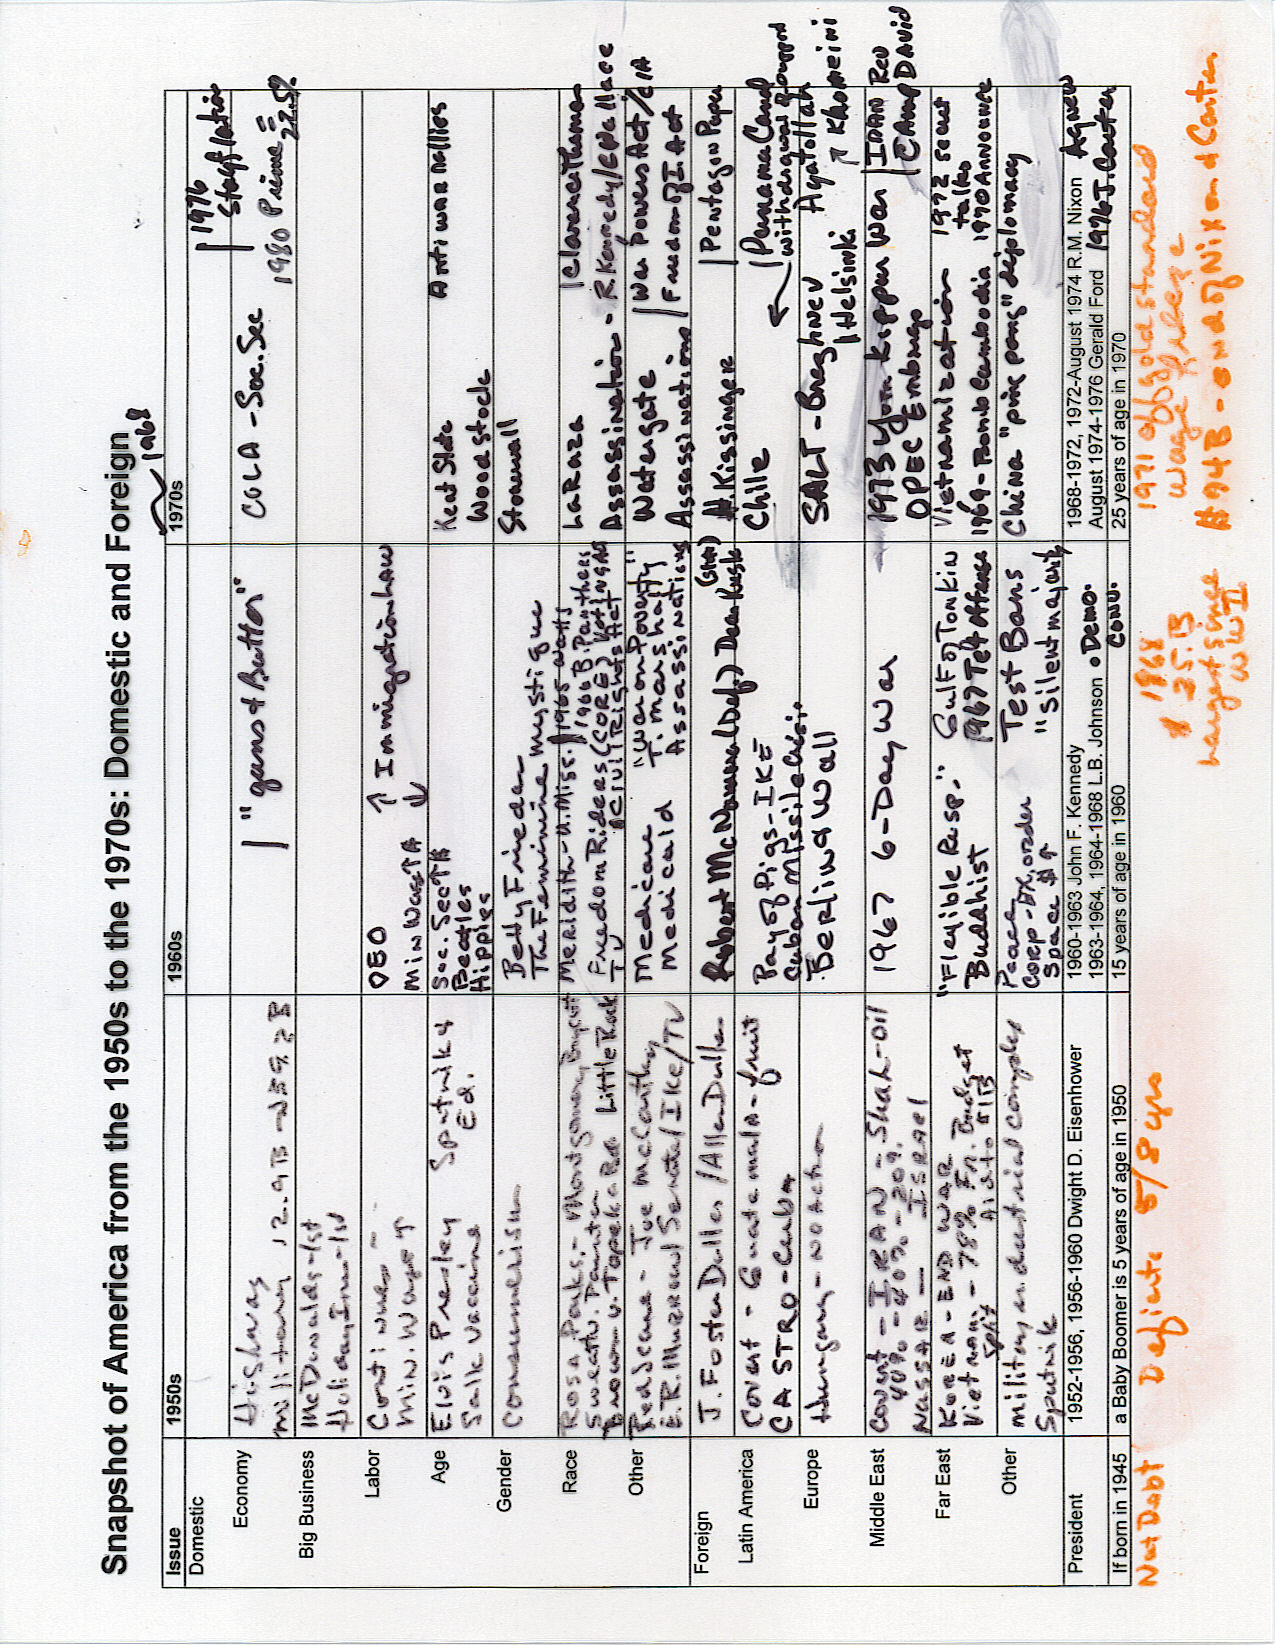 Snapshot of America from the 1950s to the 1970s: Domestic and Foreign
Issue 1950s 1960s 1970s 1968
Domestic 1976
Stagflation
Economy Highway "guns & Butter" COLA - Soc. Sec 1980 Prime =
military 22.5%
Big Business McDonalds - 1st
Holiday Inn - 1st
Labor Continues - OEO ↑ Immigration Law
Min. Wage ↑ Min Wage ↑ ↓
Age Elvis Presley Sputnik & Soc. Sec ↑ Kent State Antiwar rallies
Salk Vaccine Ed. Beatles Woodstock
Hippies
Gender Consumerism Betty Friedan Stonewall
The Feminine Mystique
Race Rosa Parks - Montgomery Boycott Meridith - U. Miss. 1965 Watts LaRaza Clarence Thomas
Sweatt v. Painter 1966 B. Panthers
Brown v. Topeka Little Rock Freedom Riders (CORE) Assassination - R Kennedy/G Wallace
TV Civil Rights Act
Other Red Scare - Joe McCarthy Medicare "War on Poverty" Watergate War Powers Act/CIA
E.R. Murrow/Senate/Ike/TV Medicaid T. marshall Assassinations Freedom of I. Act
Assassinations
Foreign J. Foster Dulles/Allen Dulles Robert McNamara (Def.) Dean Rusk H. Kissinger Pentagon Papers
Latin America Covert - Guatemala - fruit Bay of Pigs - IKE Chille Panama Canal
CASTRO - Cuba Cuban Missile Crisis ← withdrawal of support
Europe Hungary - no Action Berlin Wall SALT - Brezhnev Ayatollah
Helsinki ↗ Khomeini
Middle East Covert - IRAN - Shah - oil 1967 6-Day War 1973 Yom Kippur War IRAN Rev
40% - 40% - 20% OPEC Embargo CAmp DAvid
NASSAR - ISRAEl
Far East KOREA - END WAR "Flexible Resp." Gulf of Tonkin Vietnamization 1972 secret
Vietnam - 78% Fr. Budget Buddhist 1967 Tet Offense talks
Split 1969 - Bomb Cambodia 1970 Announce
Other military industrial complex Peace Test Bans China "ping pong" diplomacy
Sputnik Corp - Ex. order "silent majority"
Space $ ↑
President 1952-1956, 1956-1960 Dwight D. Eisenhower 1960-1963 John F. Kennedy 1968-1972, 1972-August 1974 R.M. Nixon Agnew
1963-1964, 1964-1968 L.B. Johnson • Demo. Conv. August 1974-1976 Gerald Ford 1976 J. Carter
If born in 1945 a Baby Boomer is 5 years of age in 1950 15 years of age in 1960 25 years of age in 1970
Nat Debt Deficits 5/8 yrs 1968 1971 off gold standard
$25.B wage freeze
Largest since $94B - end of Nixon & Carter
WWII